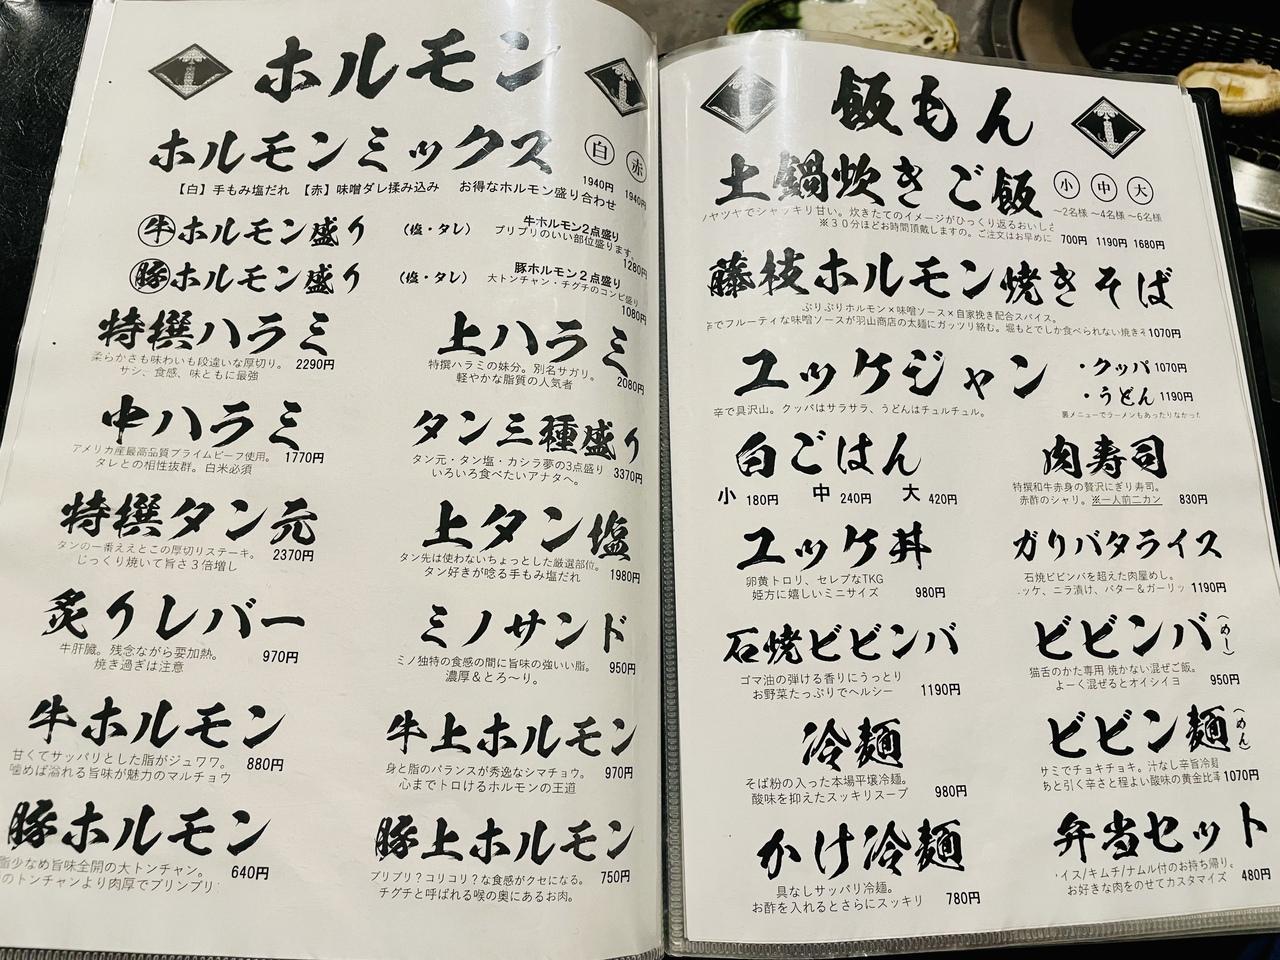 ホルモン
ホルモンミックス 白 赤
1940円 1940円
【白】手もみ塩だれ 【赤】味噌ダレ揉み込み お得なホルモン盛り合わせ
牛ホルモン盛り (塩・タレ) 牛ホルモン2点盛り
プリプリのいい部位盛ります。
1280円
豚ホルモン盛り (塩・タレ) 豚ホルモン2点盛り
大トンチャン・チグチのコンビ盛り
1080円
特撰ハラミ
柔らかさも味わいも段違いな厚切り。 2290円
サシ、食感、味ともに最強
上ハラミ
特撰ハラミの妹分。別名サガリ。
軽やかな脂質の人気者 2080円
中ハラミ
アメリカ産最高品質プライムビーフ使用。 1770円
タレとの相性抜群。白米必須
タン三種盛り
タン元・タン塩・カシラ夢の3点盛り 3370円
いろいろ食べたいアナタへ。
特撰タン元
タンの一番ええとこの厚切りステーキ。 2370円
じっくり焼いて旨さ3倍増し
上タン塩
タン先は使わないちょっとした厳選部位。
タン好きが唸る手もみ塩だれ 1980円
炙りレバー
牛肝臓。残念ながら要加熱。 970円
焼き過ぎは注意
ミノサンド
ミノ独特の食感の間に旨味の強いい脂。 950円
濃厚&とろ〜り。
牛ホルモン
甘くてサッパリとした脂がジュワワ。 880円
噛めば溢れる旨味が魅力のマルチョウ
牛上ホルモン
身と脂のバランスが秀逸なシマチョウ。 970円
心までトロけるホルモンの王道
豚ホルモン
脂少なめ旨味全開の大トンチャン。 640円
のトンチャンより肉厚でプリンプリ
豚上ホルモン
プリプリ?コリコリ?な食感がクセになる。 750円
チグチと呼ばれる喉の奥にあるお肉。
飯もん
土鍋炊きご飯 小 中 大
〜2名様 〜4名様 〜6名様
ツヤでシャッキリ甘い。炊きたてのイメージがひっくり返るおいしさ
※30分ほどお時間頂戴しますの。ご注文はお早めに 700円 1190円 1680円
藤枝ホルモン焼きそば
ぷりぷりホルモン×味噌ソース×自家挽き配合スパイス。
辛でフルーティな味噌ソースが羽山商店の太麺にガッツリ絡む。堀もとでしか食べられない焼きそ 1070円
ユッケジャン ・クッパ 1070円
・うどん 1190円
辛で具沢山。クッパはサラサラ、うどんはチュルチュル。
裏メニューでラーメンもあったりなかった
白ごはん
小 180円 中 240円 大 420円
肉寿司
特撰和牛赤身の贅沢にぎり寿司。
赤酢のシャリ。※一人前二カン 830円
ユッケ丼
卵黄トロリ、セレブなTKG
姫方に嬉しいミニサイズ 980円
ガリバタライス
石焼ビビンバを超えた肉屋めし。
ッケ、ニラ漬け、バター&ガーリッ 1190円
石焼ビビンバ
ゴマ油の弾ける香りにうっとり
お野菜たっぷりでヘルシー 1190円
ビビンバ(めし)
猫舌のかた専用 焼かない混ぜご飯。
よーく混ぜるとオイシイヨ 950円
冷麺
そば粉の入った本場平壌冷麺。
酸味を抑えたスッキリスープ 980円
ビビン麺(めん)
サミでチョキチョキ。汁なし辛旨冷麺
あと引く辛さと程よい酸味の黄金比率 1070円
かけ冷麺
具なしサッパリ冷麺。
お酢を入れるとさらにスッキリ 780円
弁当セット
イス/キムチ/ナムル付のお持ち帰り。
お好きな肉をのせてカスタマイズ 480円